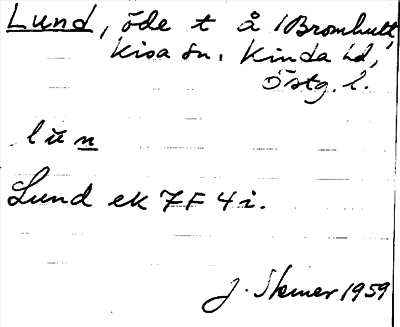 Lund, öde t å Bromhult,
Kisa sn. Kinda hd,
Östg. l.
lu n
Lund ek 7F 4i.
J. 1959